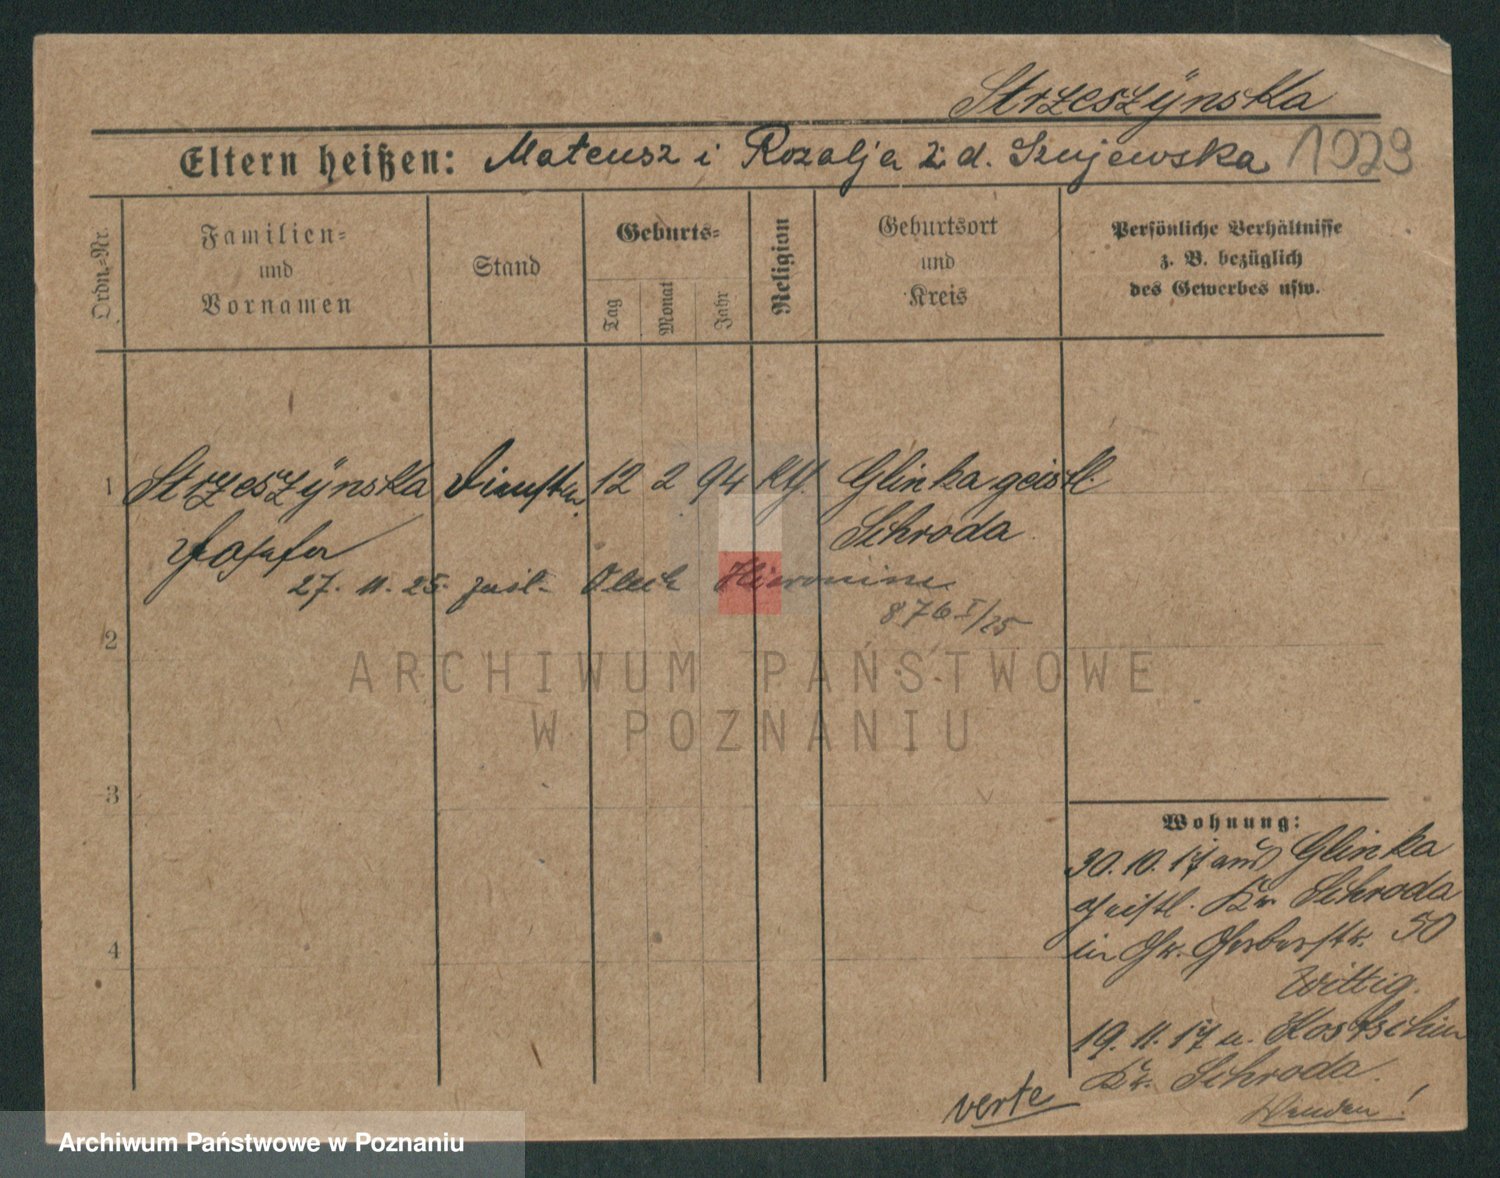 Strzeszÿnska
Eltern heißen: Mateusz i Rozalja z d. Szujewska 1029
Ordn.-Nr.
Familien-
und
Vornamen
Stand
Geburts-
Tag
Monat
Jahr
Religion
Geburtsort
und
Kreis
Persönliche Verhältnisse
z. B. bezüglich
des Gewerbes usw.
1 Strzeszÿnska 12 2 94 kth. Glinka geistl.
Josefa Schroda
27. 11. 25. Olech Hieronim
876 I/25
2
ARCHIWUM PAŃSTWOWE
W POZNANIU
3
4
Wohnung:
30.10.17 aus Glinka
geistl. Kr. Schroda
in Gr. Gerberstr. 50
Wittig.
19.11.17 n. Kostschin
Kr. Schroda.
verte
Wenden!
Archiwum Państwowe w Poznaniu